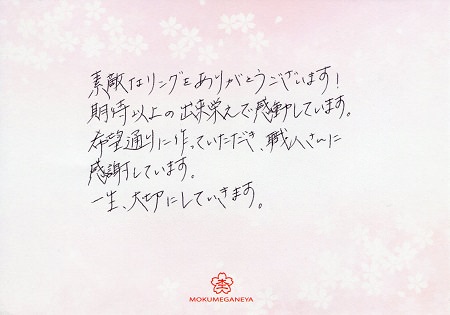 素敵なリングをありがとうございます!
期待以上の出来栄えで感動しています。
希望通りに作っていただき、職人さんに
感謝しています。
一生、大切にしていきます。
MOKUMEGANEYA